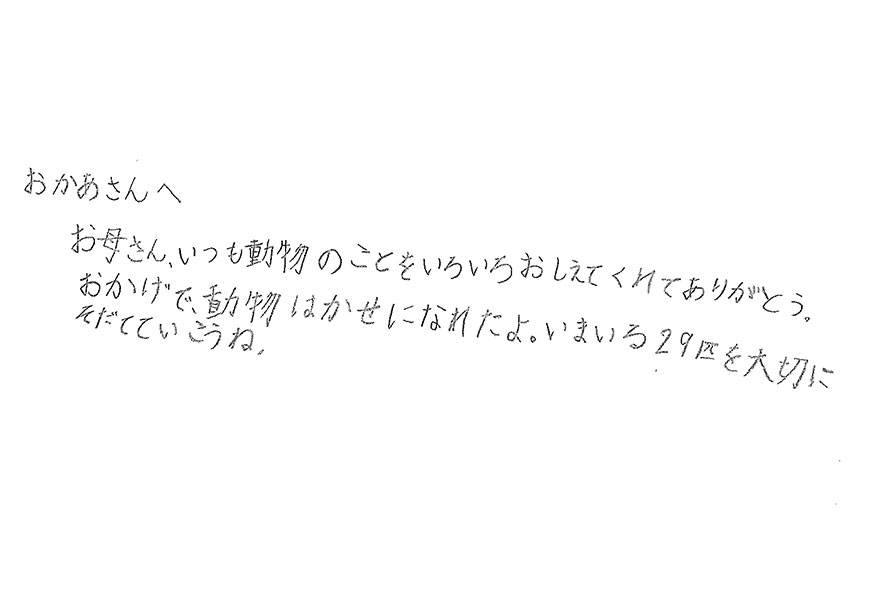 おかあさんへ
お母さん、いつも動物のことをいろいろおしえてくれてありがとう。
おかげで、動物はかせになれたよ。いまいる29匹を大切に
そだてていこうね。